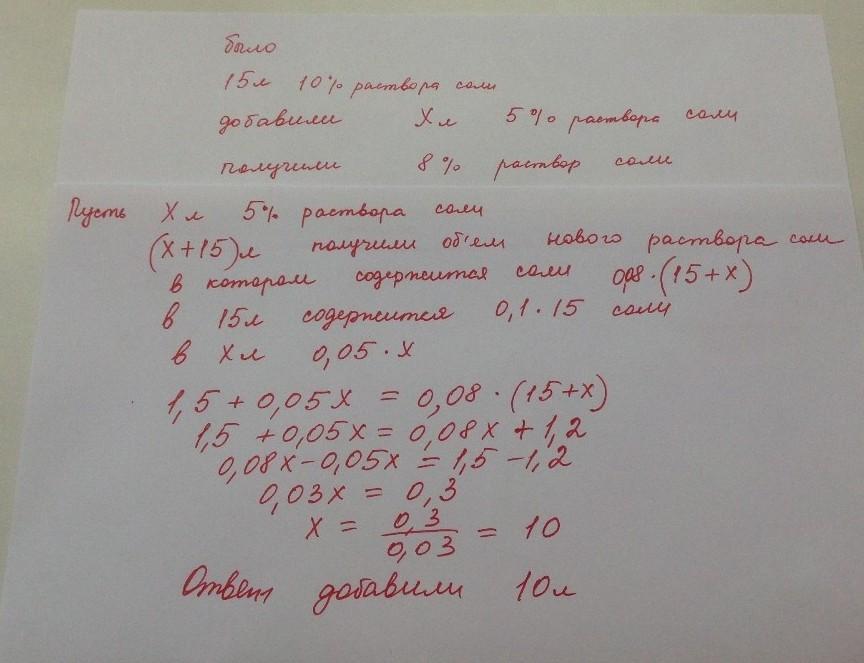 было
15л 10% раствора соли
добавили Xл 5% раствора соли
получили 8% раствор соли
Пусть Xл 5% раствора соли
(X+15)л получили об'ем нового раствора соли
в котором содержится соли 0,08·(15+X)
в 15л содержится 0,1·15 соли
в Xл 0,05·X
1,5 + 0,05X = 0,08·(15+X)
1,5 + 0,05X = 0,08X + 1,2
0,08X - 0,05X = 1,5 - 1,2
0,03X = 0,3
X = 0,3/0,03 = 10
Ответ добавили 10л